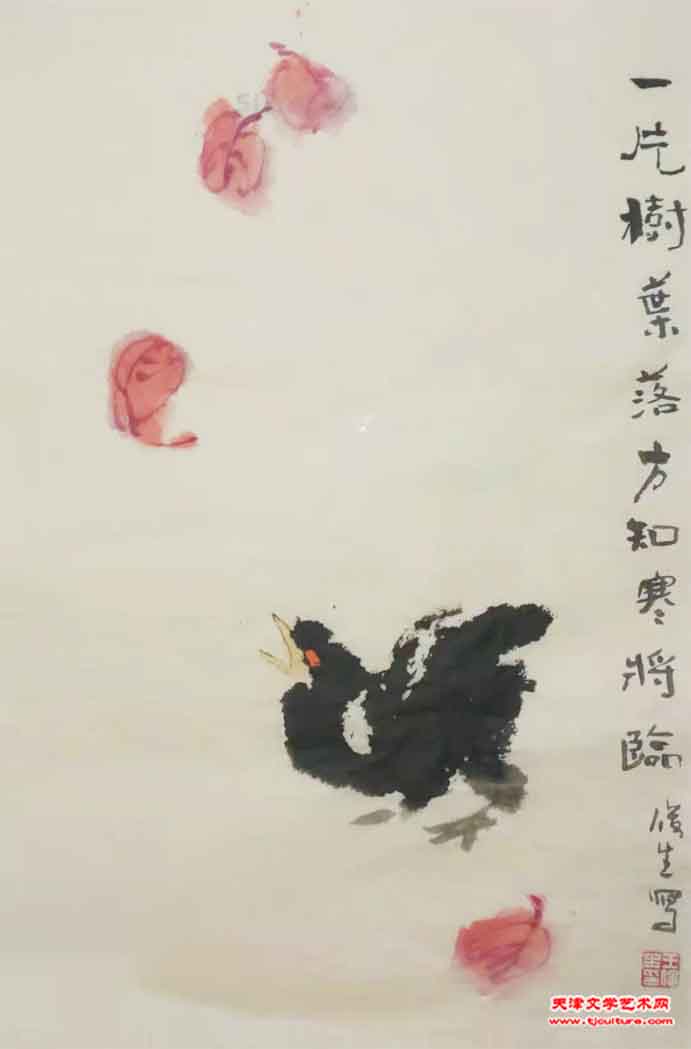 一片樹葉落方知寒將臨
俊生寫
天津文学艺术网
www.tjculture.com